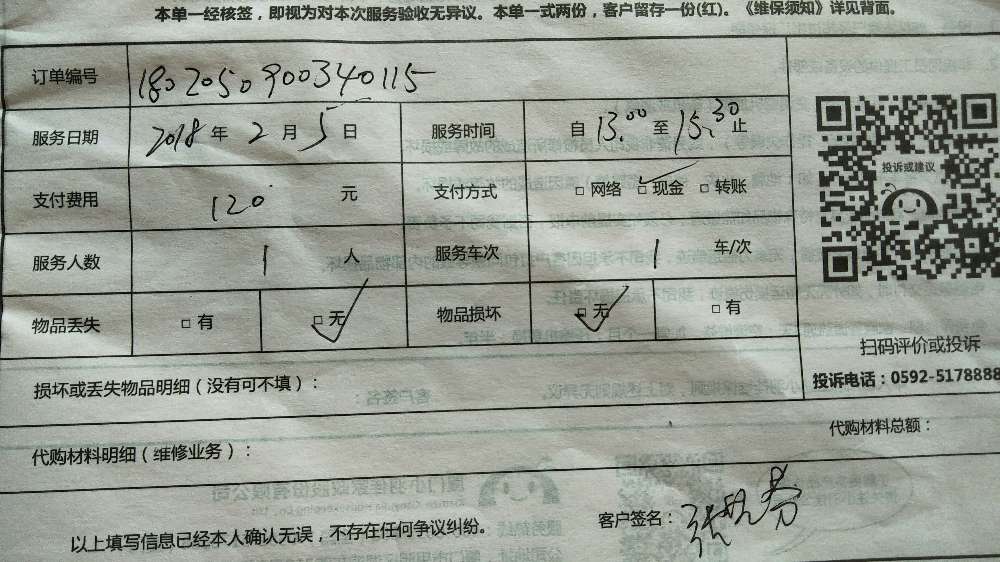 本单一经核签，即视为对本次服务验收无异议。本单一式两份，客户留存一份(红)。《维保须知》详见背面。
订单编号 1802050900340115
服务日期 2018 年 2 月 5 日 服务时间 自 13.00 至 15.30 止
投诉或建议
支付费用 120 元 支付方式 □ 网络 □ 现金 □ 转账
服务人数 1 人 服务车次 1 车/次
物品丢失 □ 有 □ 无 物品损坏 □ 无 □ 有
扫码评价或投诉
损坏或丢失物品明细（没有可不填）： 投诉电话：0592-5178888
代购材料明细（维修业务）： 代购材料总额：
以上填写信息已经本人确认无误，不存在任何争议纠纷。 客户签名：